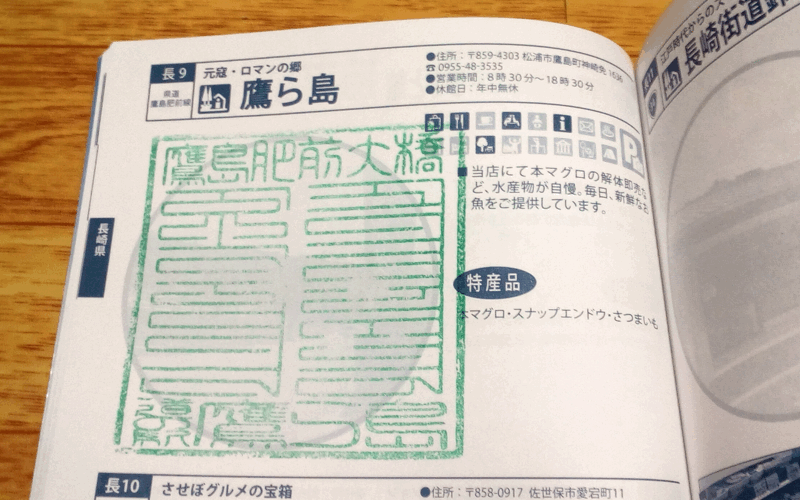 長9
県道
鷹島肥前線
元寇・ロマンの郷
鷹ら島
●住所：〒859-4303 松浦市鷹島町神崎免1636
☎0955-48-3535
●営業時間：8時30分～18時30分
●休館日：年中無休
鷹島肥前大橋
鷹ら島
P
■当店にて本マグロの解体即売な
ど、水産物が自慢。毎日、新鮮なお
魚をご提供しています。
特産品
本マグロ・スナップエンドウ・さつまいも
長崎県
長10
させぼグルメの宝箱
●住所：〒858-0917 佐世保市愛宕町11
江戸時代からの
長崎街道